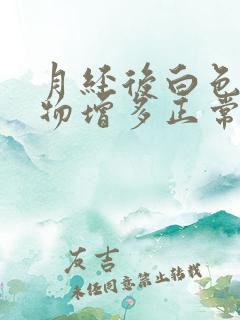 月经后白色
物增多正常
友吉
未经同意禁止转载